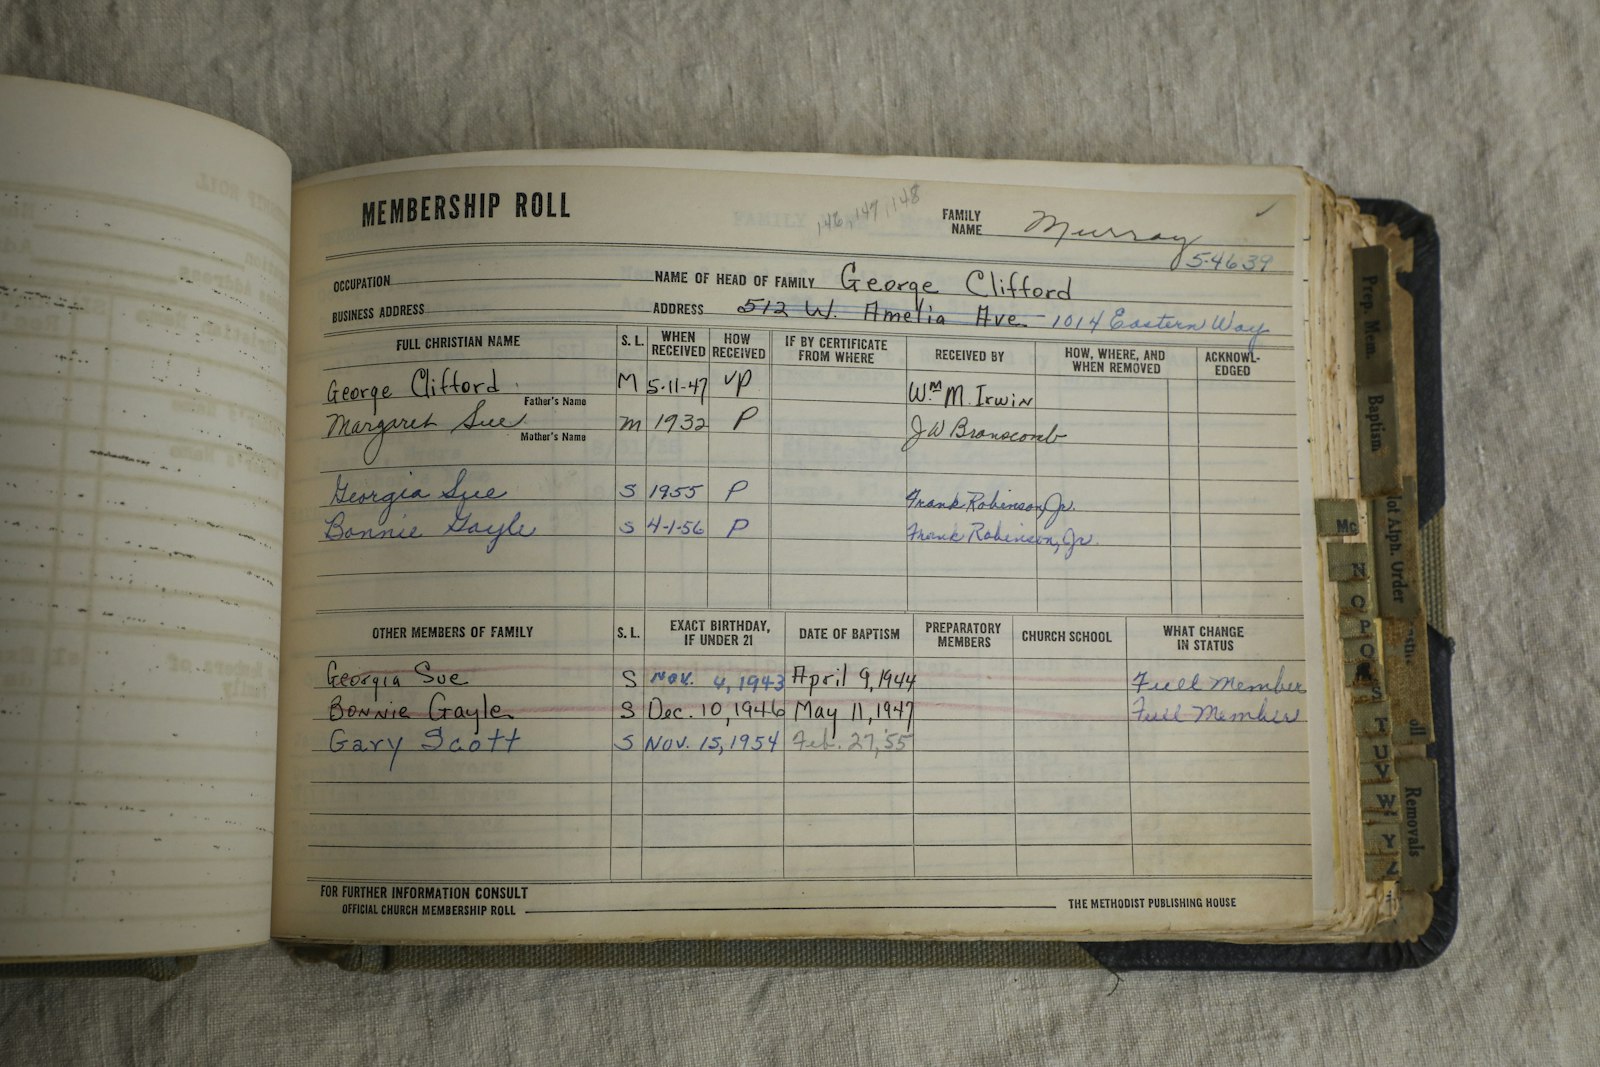 MEMBERSHIP ROLL
146, 147, 148
FAMILY NAME Murray
5-4639
OCCUPATION NAME OF HEAD OF FAMILY George Clifford
BUSINESS ADDRESS ADDRESS 512 W. Amelia Ave. 1014 Eastern Way
FULL CHRISTIAN NAME S. L. WHEN RECEIVED HOW RECEIVED IF BY CERTIFICATE FROM WHERE RECEIVED BY HOW, WHERE, AND WHEN REMOVED ACKNOWL-EDGED
George Clifford M 5-11-47 VP Wm. M. Irwin
Father's Name
Margaret Sue M 1932 P J W Branscomb
Mother's Name
Georgia Sue S 1955 P Frank Robinson, Jr.
Bonnie Gayle S 4-1-56 P Frank Robinson, Jr.
OTHER MEMBERS OF FAMILY S. L. EXACT BIRTHDAY, IF UNDER 21 DATE OF BAPTISM PREPARATORY MEMBERS CHURCH SCHOOL WHAT CHANGE IN STATUS
Georgia Sue S Nov. 4, 1943 April 9, 1944 Full Member
Bonnie Gayle S Dec. 10, 1946 May 11, 1947 Full Member
Gary Scott S Nov. 15, 1954 Feb. 27, '55
FOR FURTHER INFORMATION CONSULT
OFFICIAL CHURCH MEMBERSHIP ROLL THE METHODIST PUBLISHING HOUSE
Prep. Mem.
Baptism
Alph. Order
Roll
Removals
Mc
N
O
P
Q
S
T
U
V
W
Y
Z